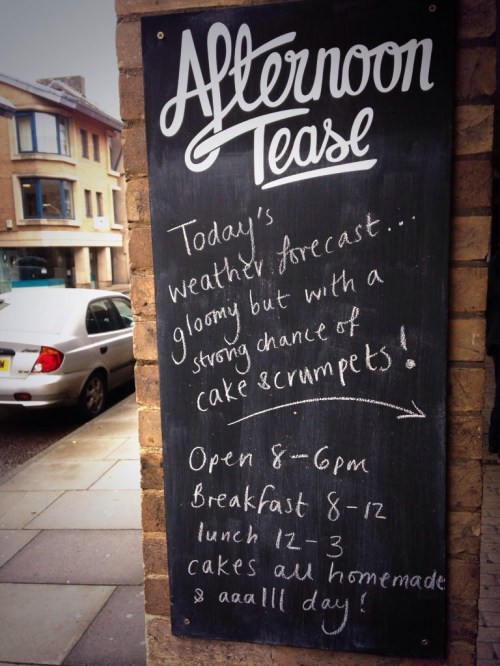 Afternoon
Tease
Today's
weather forecast...
gloomy but with a
strong chance of
cake & crumpets!
Open 8-6pm
Breakfast 8-12
lunch 12-3
cakes all homemade
& aaalll day!